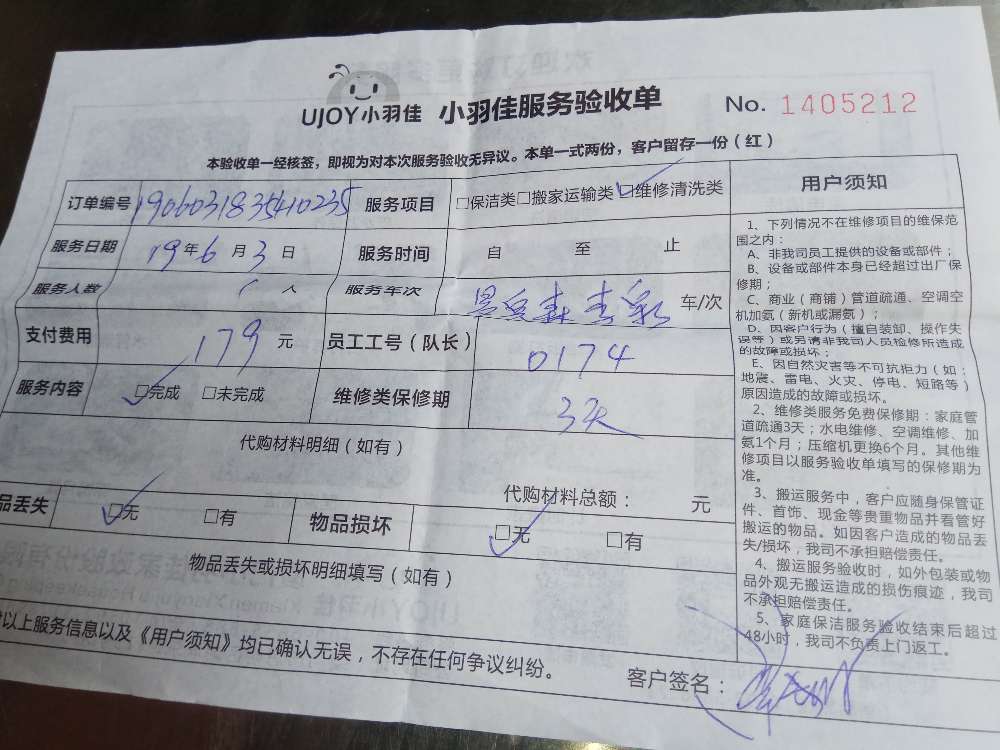 UJOY小羽佳 小羽佳服务验收单 No. 1405212
本验收单一经核签，即视为对本次服务验收无异议。本单一式两份，客户留存一份（红）
订单编号 190603183540235 服务项目 □保洁类□搬家运输类□维修清洗类
服务日期 19年6月3日 服务时间 自 至 止
服务人数 人 服务车次 车/次
支付费用 179 元 员工工号（队长） 0174
服务内容 □完成 □未完成 维修类保修期 3天
代购材料明细（如有）
代购材料总额： 元
品丢失 □无 □有 物品损坏 □无 □有
物品丢失或损坏明细填写（如有）
以上服务信息以及《用户须知》均已确认无误，不存在任何争议纠纷。
客户签名：
用户须知
1、下列情况不在维修项目的维保范
围之内：
A、非我司员工提供的设备或部件；
B、设备或部件本身已经超过出厂保
修期；
C、商业（商铺）管道疏通、空调空
机加氨（新机或漏氨）；
D、因客户行为（擅自装卸、操作失
误等）或另请非我司人员检修所造成
的故障或损坏；
E、因自然灾害等不可抗拒力（如：
地震、雷电、火灾、停电、短路等）
原因造成的故障或损坏。
2、维修类服务免费保修期：家庭管
道疏通3天；水电维修、空调维修、加
氨1个月；压缩机更换6个月。其他维
修项目以服务验收单填写的保修期为
准。
3、搬运服务中，客户应随身保管证
件、首饰、现金等贵重物品并看管好
搬运的物品。如因客户造成的物品丢
失/损坏，我司不承担赔偿责任。
4、搬运服务验收时，如外包装或物
品外观无搬运造成的损伤痕迹，我司
不承担赔偿责任。
5、家庭保洁服务验收结束后超过
48小时，我司不负责上门返工。